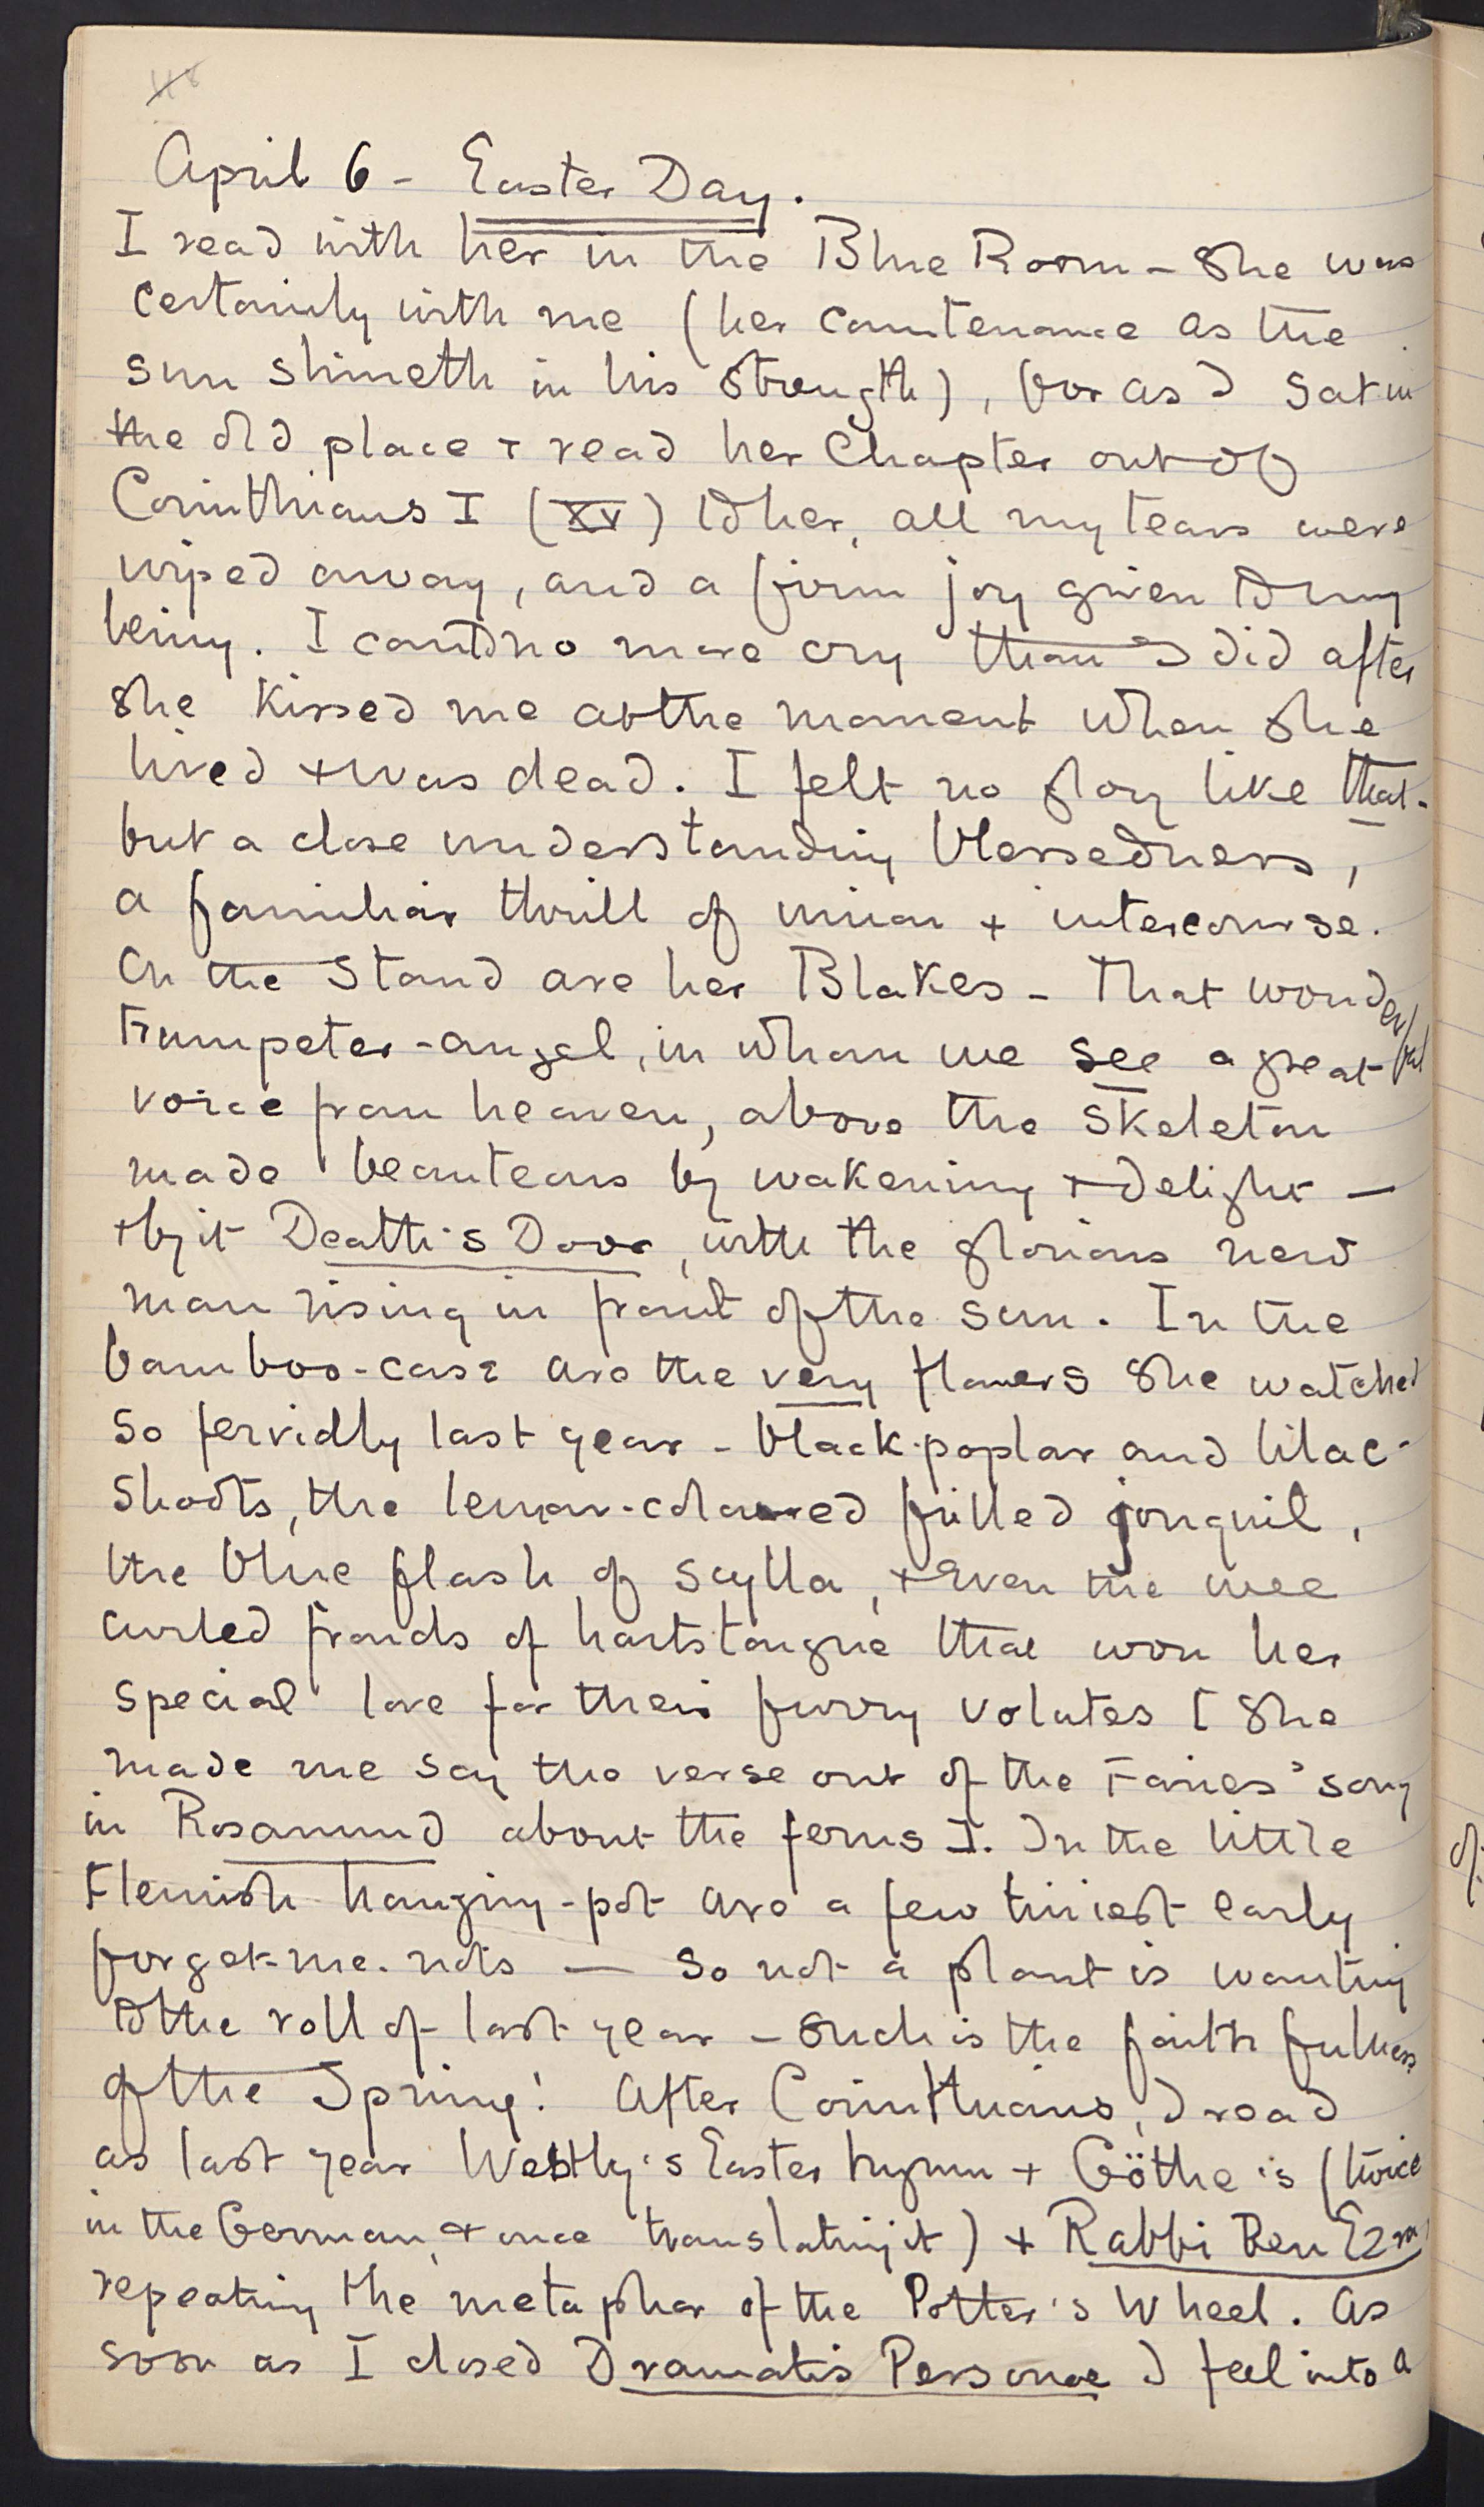 April 6 - Easter Day.
I read with her in the Blue Room - She was
certainly with me (her countenance as the
sun shineth in his strength), for as I sat in
the old place + read her Chapter out of
Corinthians I (XV) to her, all my tears were
wiped away, and a firm joy given to my
being. I could no more cry than I did after
she kissed me at the moment when she
lived + was dead. I felt no glory like that -
but a close understanding blessedness,
a familiar thrill of union + intercourse.
On the stand are her Blakes - That wonderful
trumpeter-angel, in whom we see a great
voice from heaven, above the skeleton
made beauteous by wakening + delight —
+ by it Death's Door, with the glorious new
man rising in front of the sun. In the
bamboo-case are the very flowers she watched
so fervidly last year - black-poplar and lilac-
shoots, the lemon-coloured frilled jonquil,
the blue flash of scylla, + even the wee
curled fronds of hartstongue that won her
special love for their furry volutes [She
made me say the verse out of the Fairies' song
in Rosamund about the ferns]. In the little
Flemish hanging-pot are a few tiniest early
forget-me-nots — So not a plant is wanting
to the roll of last year - Such is the faithfulness
of the Spring! After Corinthians, I read
as last year Westly's Easter hymn + Göthe's (twice
in the German, + once translating it) + Rabbi Ben Ezra,
repeating the metaphor of the Potter's Wheel. As
soon as I closed Dramatis Personae I feel into a